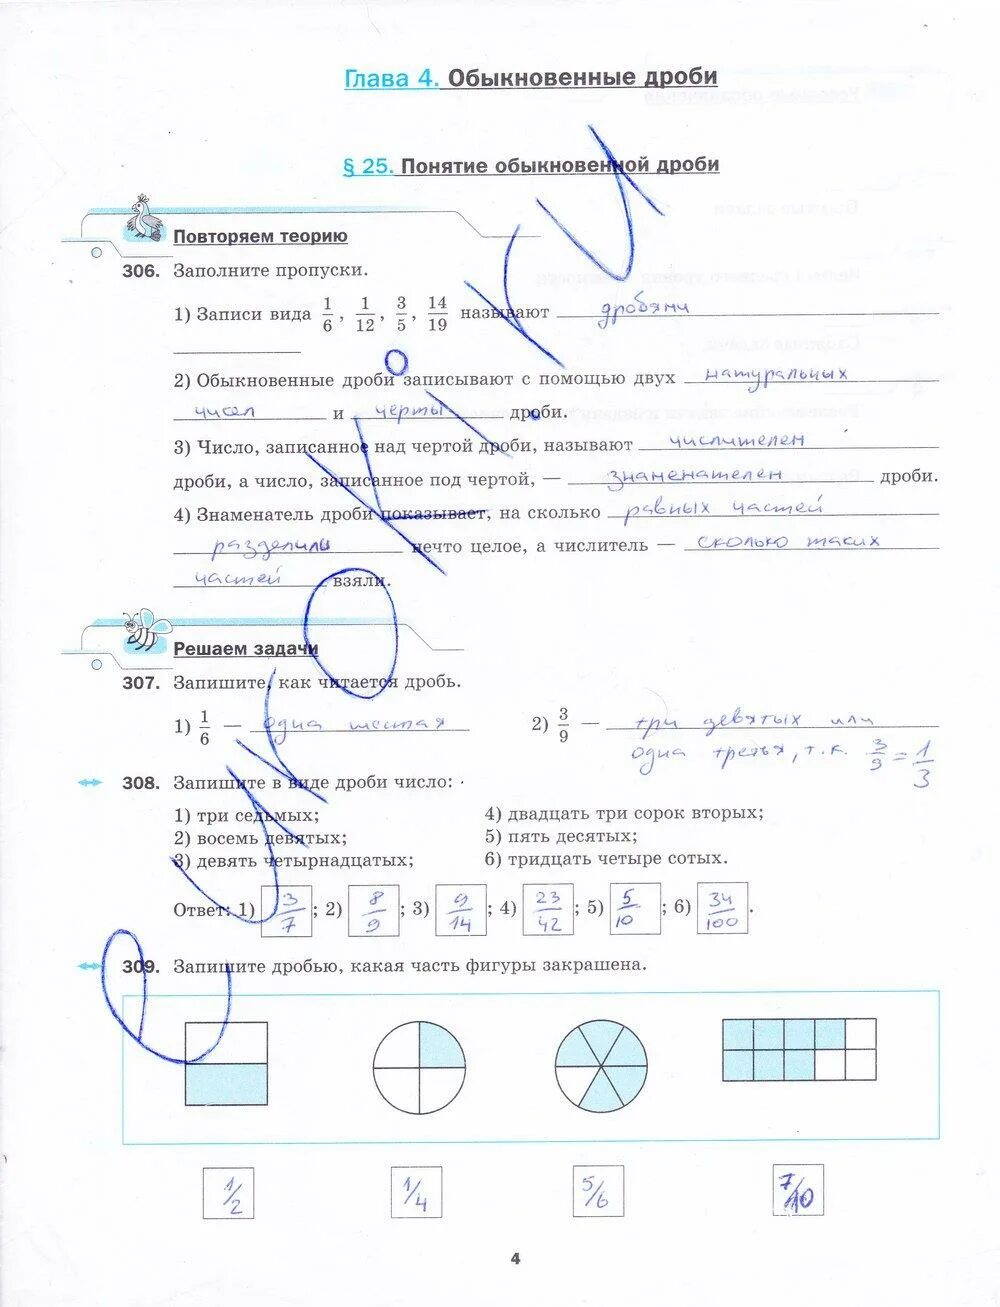 Глава 4. Обыкновенные дроби
§ 25. Понятие обыкновенной дроби
Повторяем теорию
306. Заполните пропуски.
1) Записи вида 1/6, 1/12, 3/5, 14/19 называют дробями
2) Обыкновенные дроби записывают с помощью двух натуральных
чисел и черты дроби.
3) Число, записанное над чертой дроби, называют числителем
дроби, а число, записанное под чертой, — знаменателем дроби.
4) Знаменатель дроби показывает, на сколько равных частей
разделили нечто целое, а числитель — сколько таких
частей взяли.
Решаем задачи
307. Запишите, как читается дробь.
1) 1/6 — одна шестая 2) 3/9 — три девятых или
одна третья, т.к. 3/9 = 1/3
308. Запишите в виде дроби число:
1) три седьмых; 4) двадцать три сорок вторых;
2) восемь девятых; 5) пять десятых;
3) девять четырнадцатых; 6) тридцать четыре сотых.
Ответ: 1) 3/7; 2) 8/9; 3) 9/14; 4) 23/42; 5) 5/10; 6) 34/100.
309. Запишите дробью, какая часть фигуры закрашена.
1/2 1/4 5/6 7/10
4